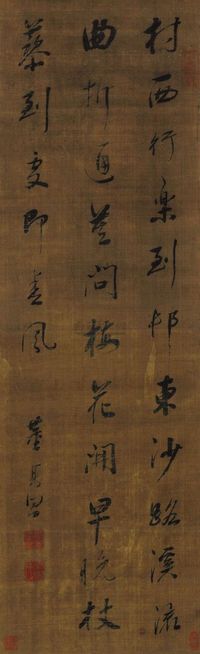 村西行樂到邨東沙路溪流
曲折通莫問梅花開早晚杖
藜到處即春風
董其昌